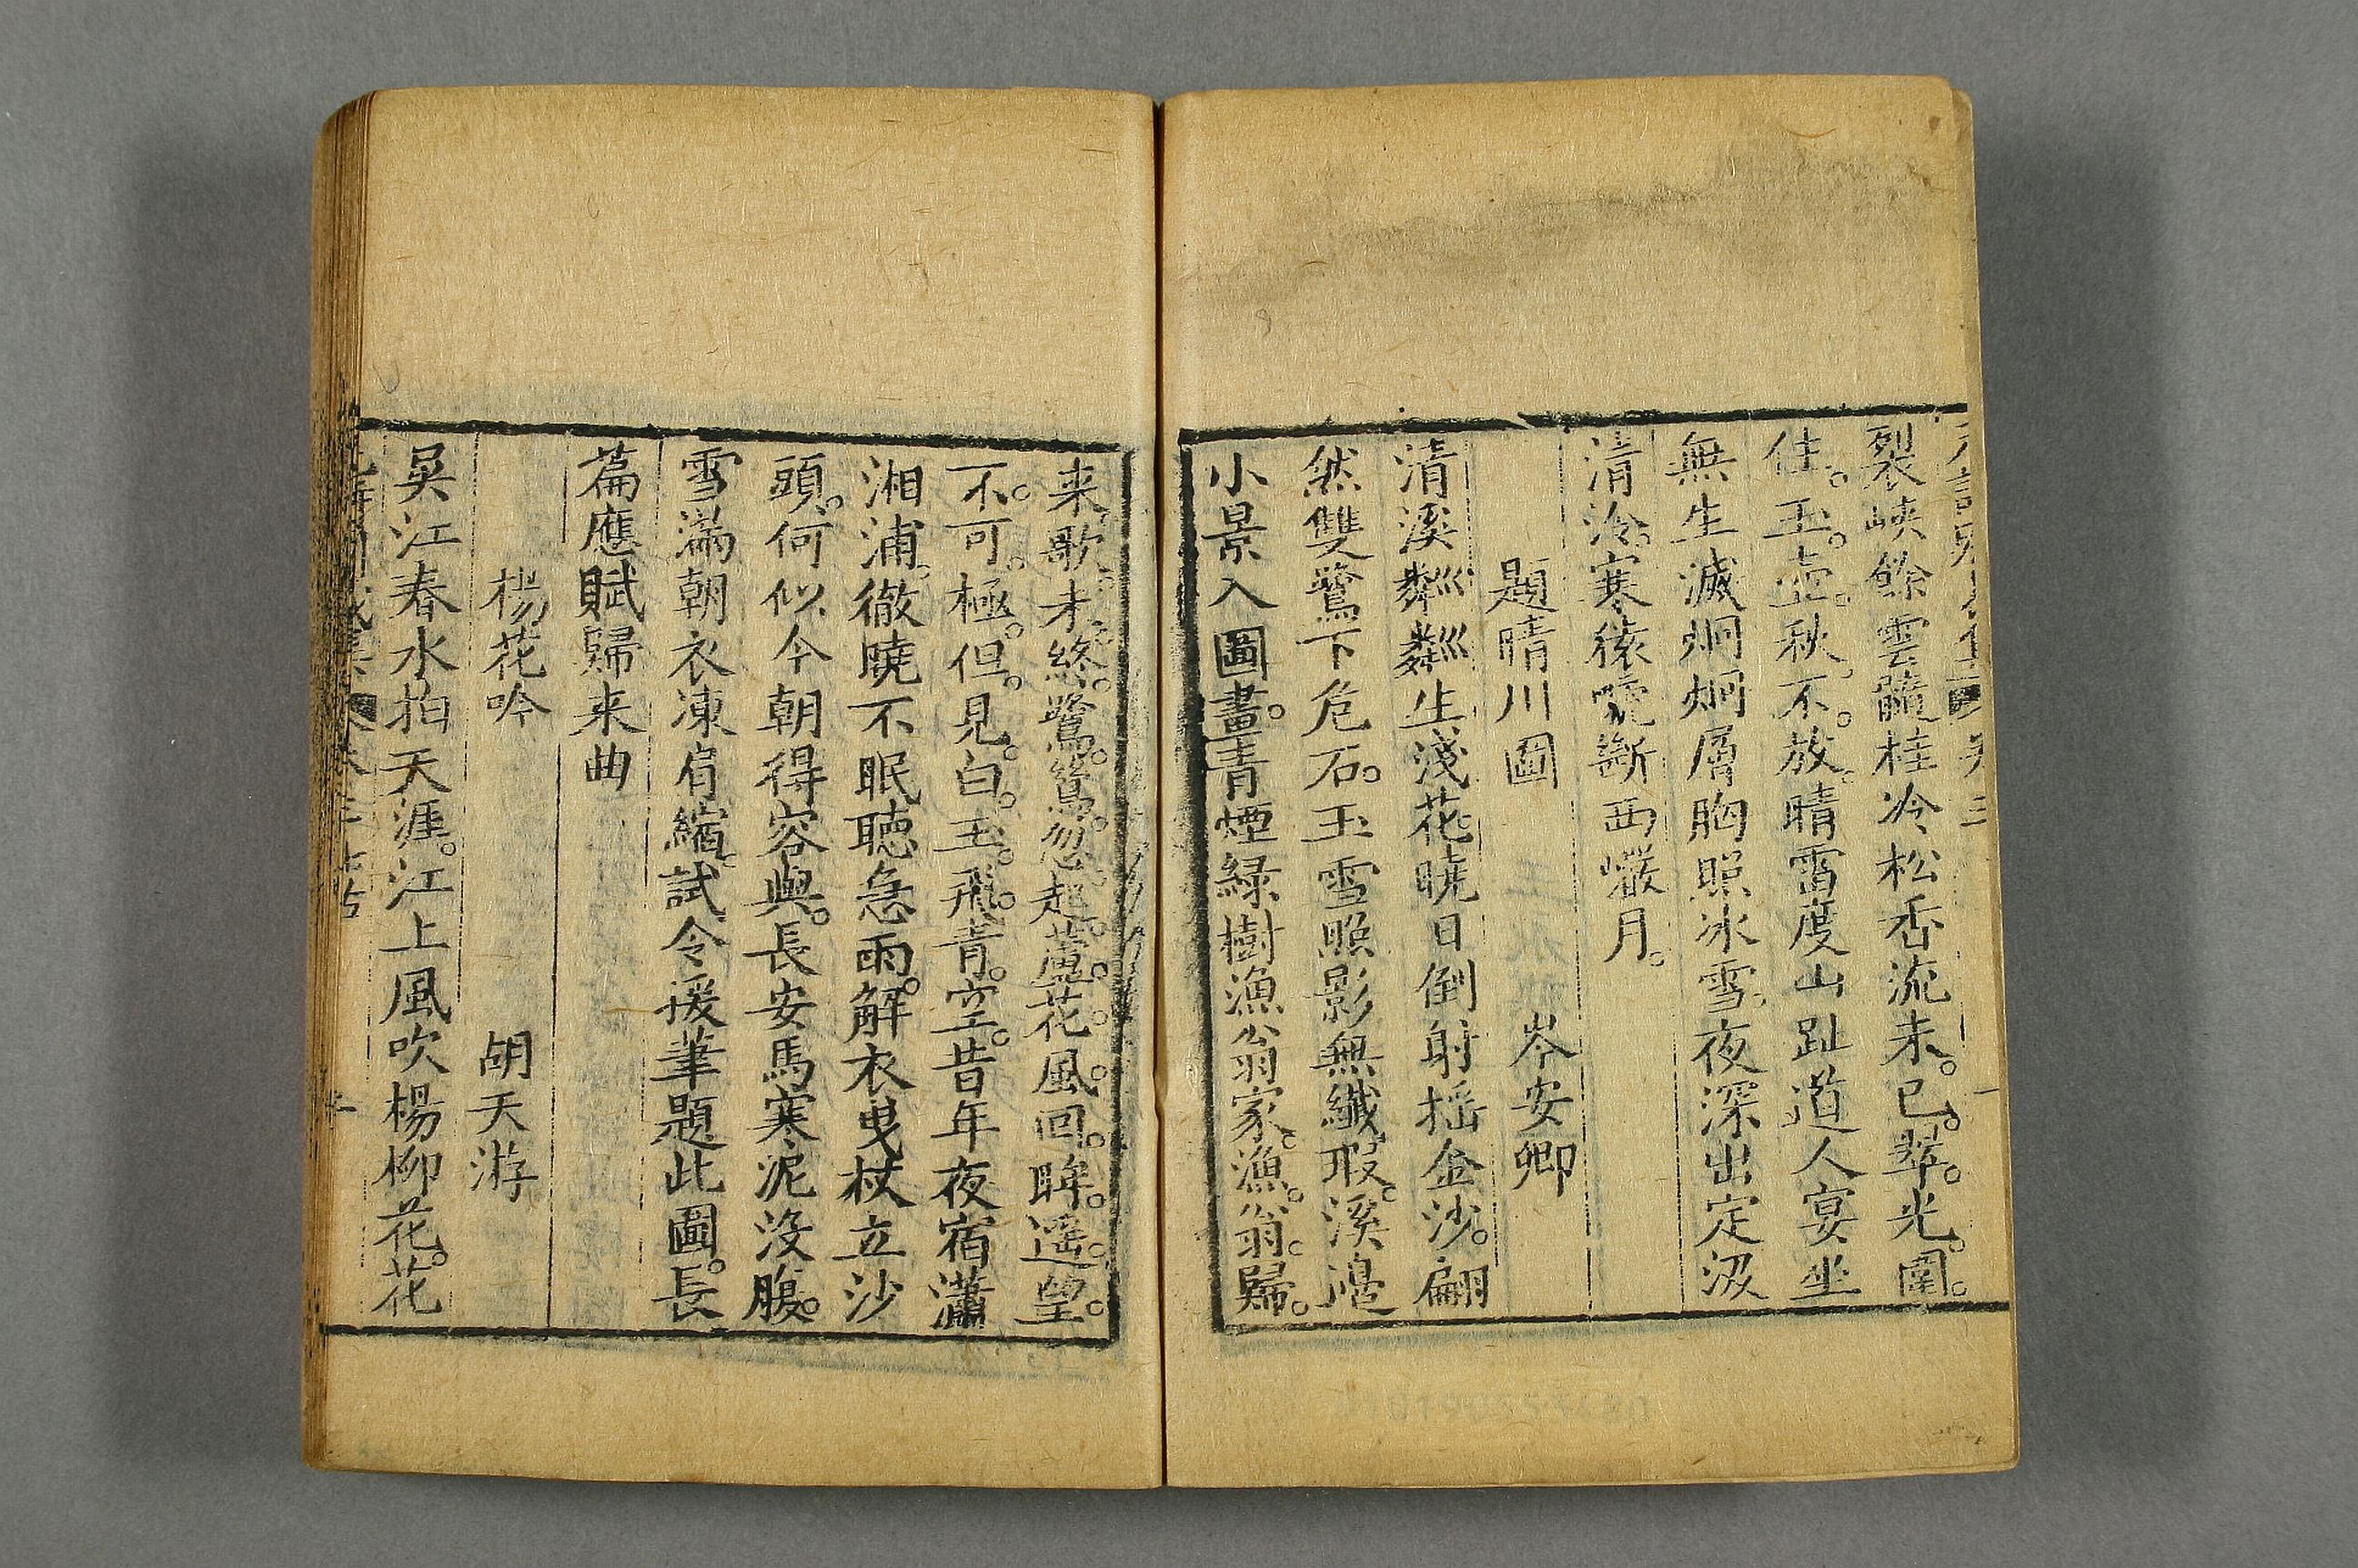 裂峽餘雲髓桂冷松香流未。已。翠。光。團。
住。玉。壺。秋。不。放。晴雷度山趾道人宴坐
無生滅炯炯層胸照冰雪。夜深出定汲
清泠。寒猿嘯斷西巖月。
題晴川圖 岑安卿
清溪粼粼生淺花。曉日倒射揺金沙。翩
然雙鷺下危石。玉雪照影無纖瑕。溪邊
小景入圖畫。青煙緑樹漁翁家。漁。翁。歸。
来。歌。未。終。鷺。鷥。忽。起。蘆。花。風。回。眸。遥。望。
不。可。極。但。見。白。玉。飛。青。空。昔年夜宿瀟
湘浦。徹曉不眠聴急雨。解衣曳杖立沙
頭。何似今朝得容與。長安馬寒泥没腹。
雪滿朝衣凍肩縮。試令援筆題此圖。長
篇應賦歸来曲
楊花吟 胡天游
吴江春水拍天涯。江上風吹楊柳花。花